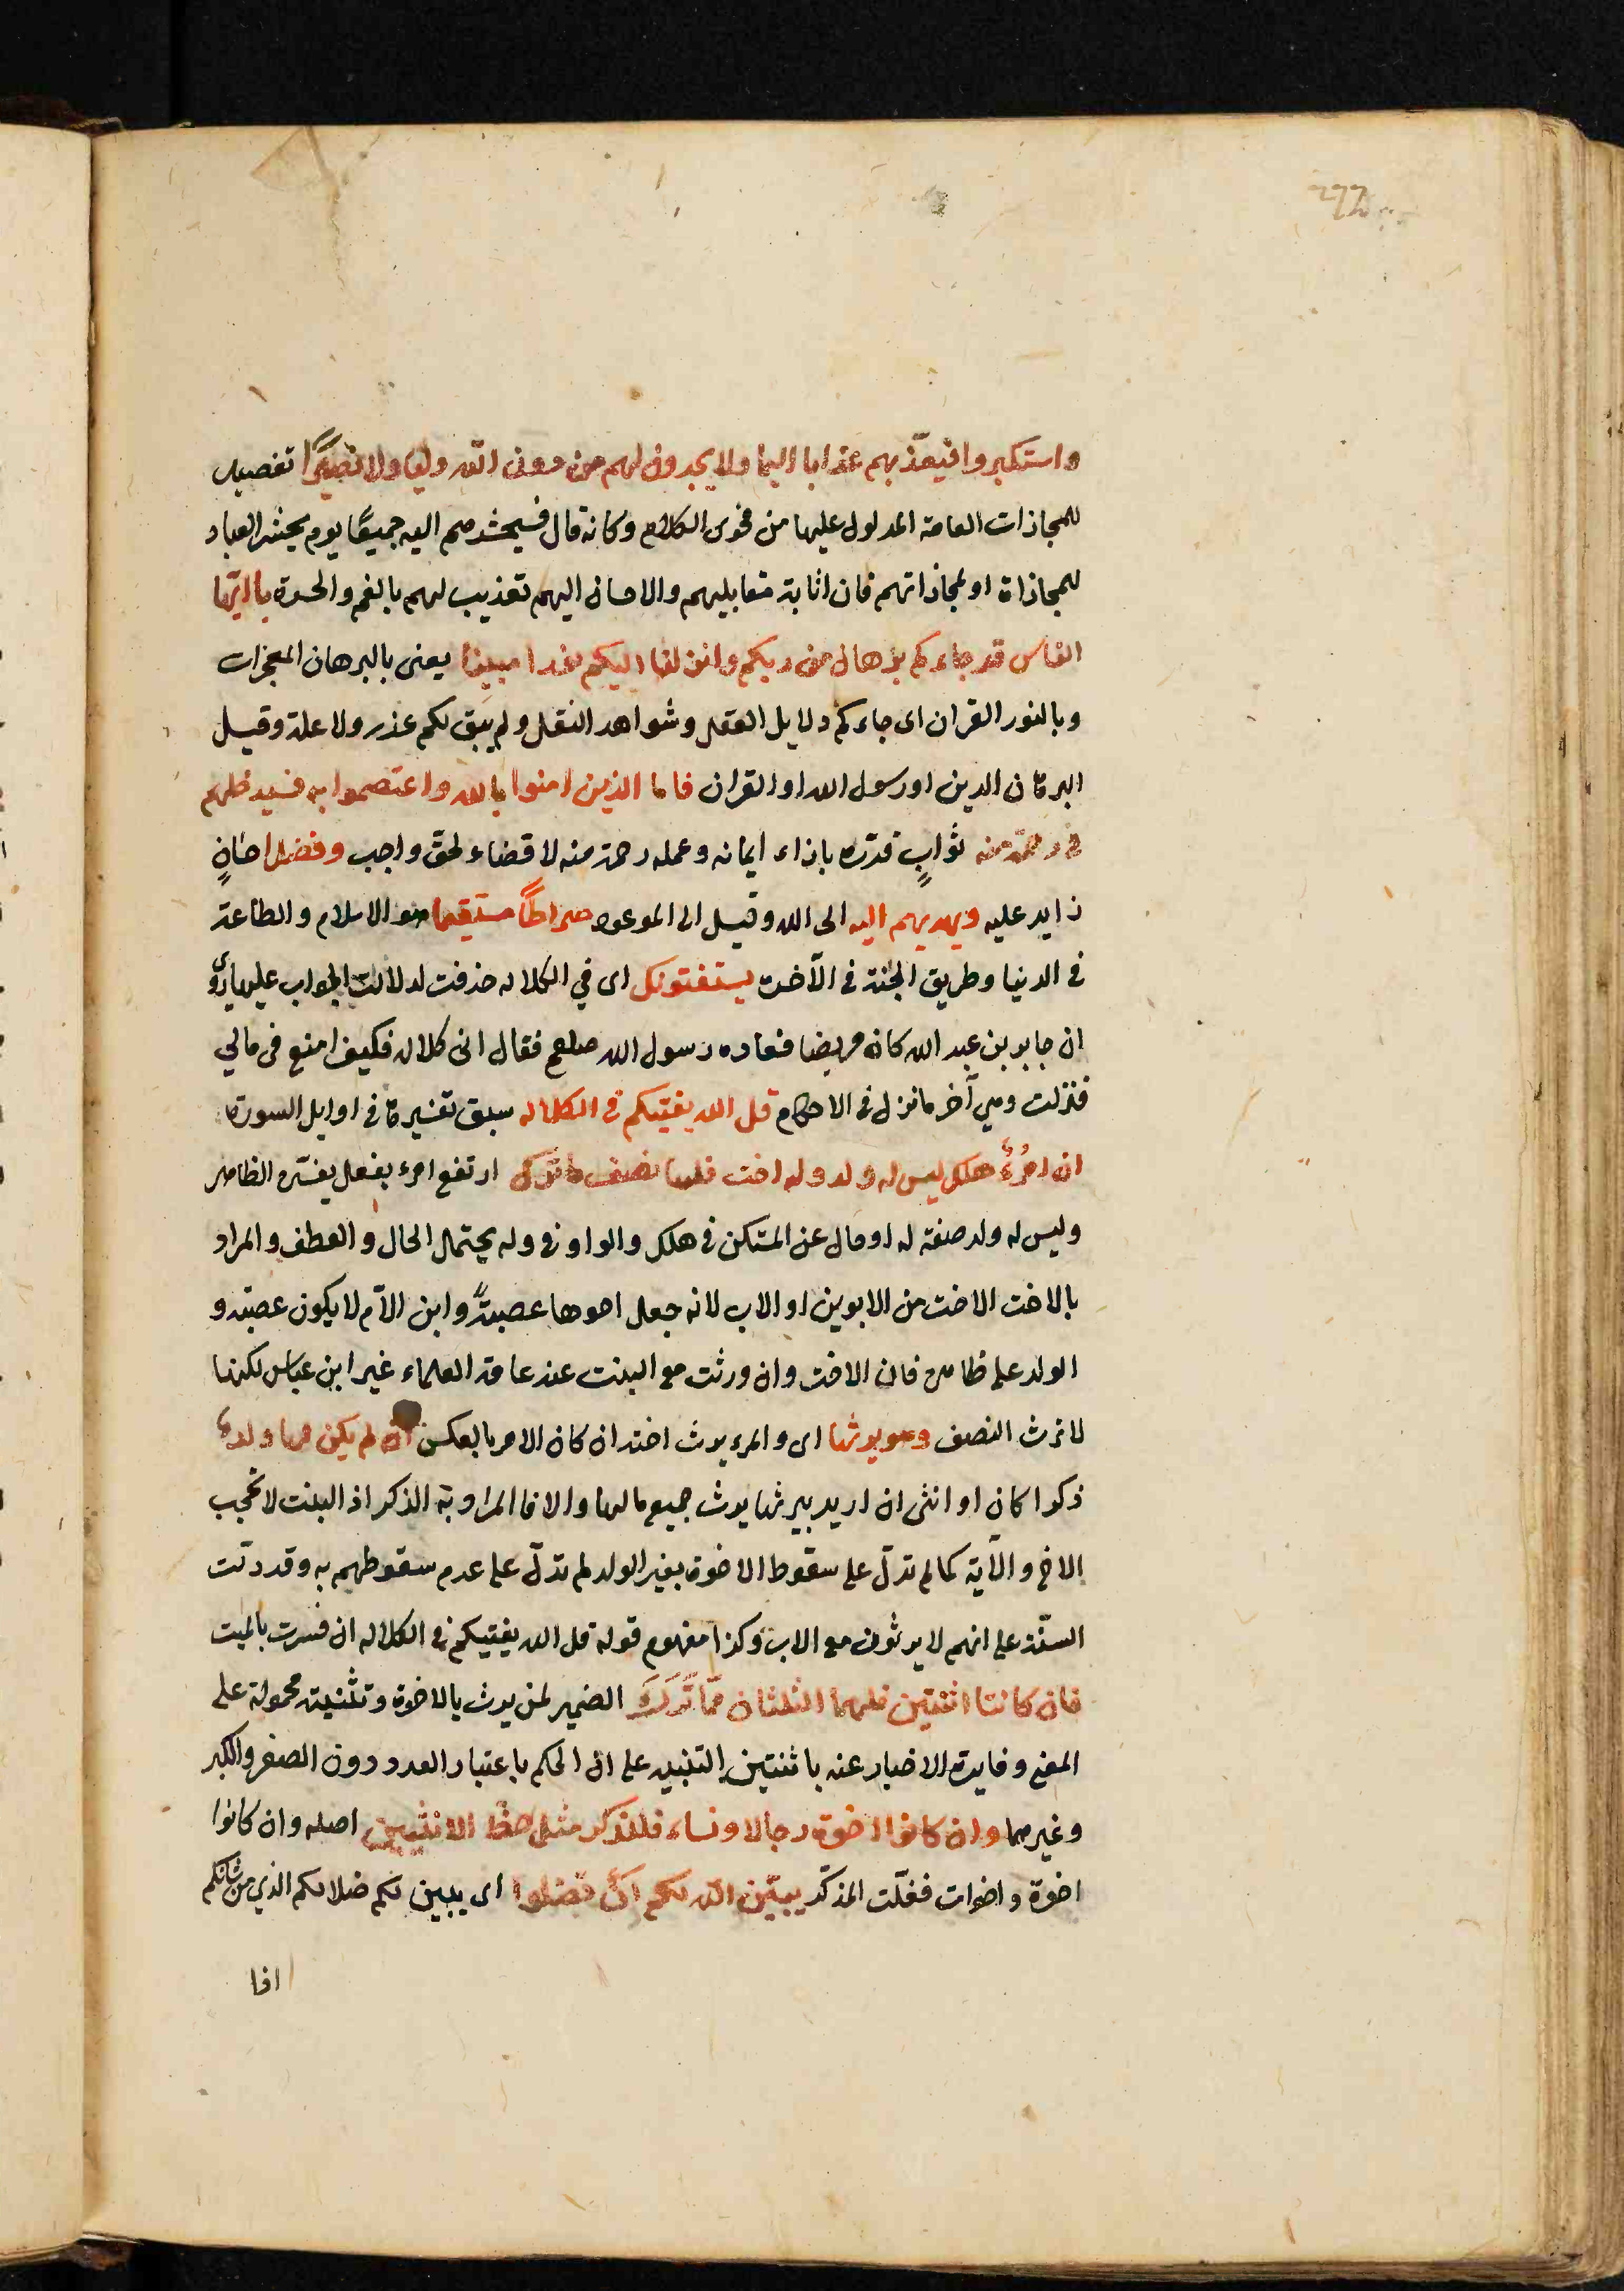 واستكبروا فيعذّبهم عذابا اليما ولا يجدون لهم من دون الله وليا ولا نصيرًا تفصيل
للمجازات العامة المدلول عليها من فحوى الكلام وكانه قال فسيحشرهم اليه جميعًا يوم يحشر العباد
للمجازاة او لمجازاتهم فان اثابة مقابليهم والاحسان اليهم تعذيب لهم بالغم والحسرة يا ايّها
الناس قد جاءكم برهان من ربكم وانزلنا اليكم نورا مبينا يعنى بالبرهان المعجزات
وبالنور القران اى جاءكم دلايل العقل وشواهد النقل ولم يبق لكم عذر ولا علة وقيل
البرهان الدين او رسول الله او القران فاما الذين امنوا بالله واعتصموا به فسيدخلهم
فى رحمة منه ثوابٍ قدّره بازاء ايمانه وعمله رحمة منه لا قضاء لحق واجب وفضل احسانٍ
زايد عليه ويهديهم اليه الى الله وقيل الى الموعود صراطًا مستقيما هو الاسلام والطاعة
فى الدنيا وطريق الجنة فى الآخرة يستفتونك اى في الكلاله حذفت لدلالة الجواب عليها روى
ان جابر بن عبد الله كان مريضا فعاده رسول الله صلعم فقال انى كلاله فكيف اصنع فى مالي
فنزلت وهي آخر ما نزل فى الاحكام قل الله يفتيكم فى الكلاله سبق تفسيرها فى اوايل السورة
ان امرُؤٌ هلك ليس له ولد وله اخت فلها نصف ما ترك ارتفع امرء بفعل يفسّره الظاهر
وليس له ولد صفة له او حال عن المستكن فى هلك والواو فى وله يحتمل الحال والعطف والمراد
بالاخت الاخت من الابوين او الاب لانه جعل اخوها عصبةً وابن الاّم لا يكون عصبة و
الولد على ظاهره فان الاخت وان ورثت مع البنت عند عامة العلماء غير ابن عباس لكنها
لا ترث النصف وهو يرثها اى والمرء يرث اخته ان كان الامر بالعكس ان لم يكن لها ولدٌ
ذكرا كان او انثى ان اريد بيرثها يرث جميع مالها والا فالمراد به الذكر اذ البنت لا تحجب
الاخ والآية كما لم تدلّ على سقوط الاخوة بغير الولد لم تدلّ على عدم سقوطهم به وقد دلّت
السنّة على انهم لا يرثون مع الاب وكذا مفهوم قوله قل الله يفتيكم فى الكلاله ان فسرت بالميت
فان كانتا اثنتين فلهما الثلثان ممّا تَرَكَ الضمير لمن يرث بالاخوة وتثنيته محمولة على
المعنى وفايدة الاخبار عنه باثنتين التنبيه على ان الحكم باعتبار العدد دون الصغر والكبر
وغيرهما وان كانوا اخوة رجالا ونساء فللذكر مثل حظ الانثيين اصله وان كانوا
اخوة واخوات فغلّب المذكّر يبيّن الله لكم ان تضلوا اى يبين لكم ضلالكم الذى من شانكم
اذا